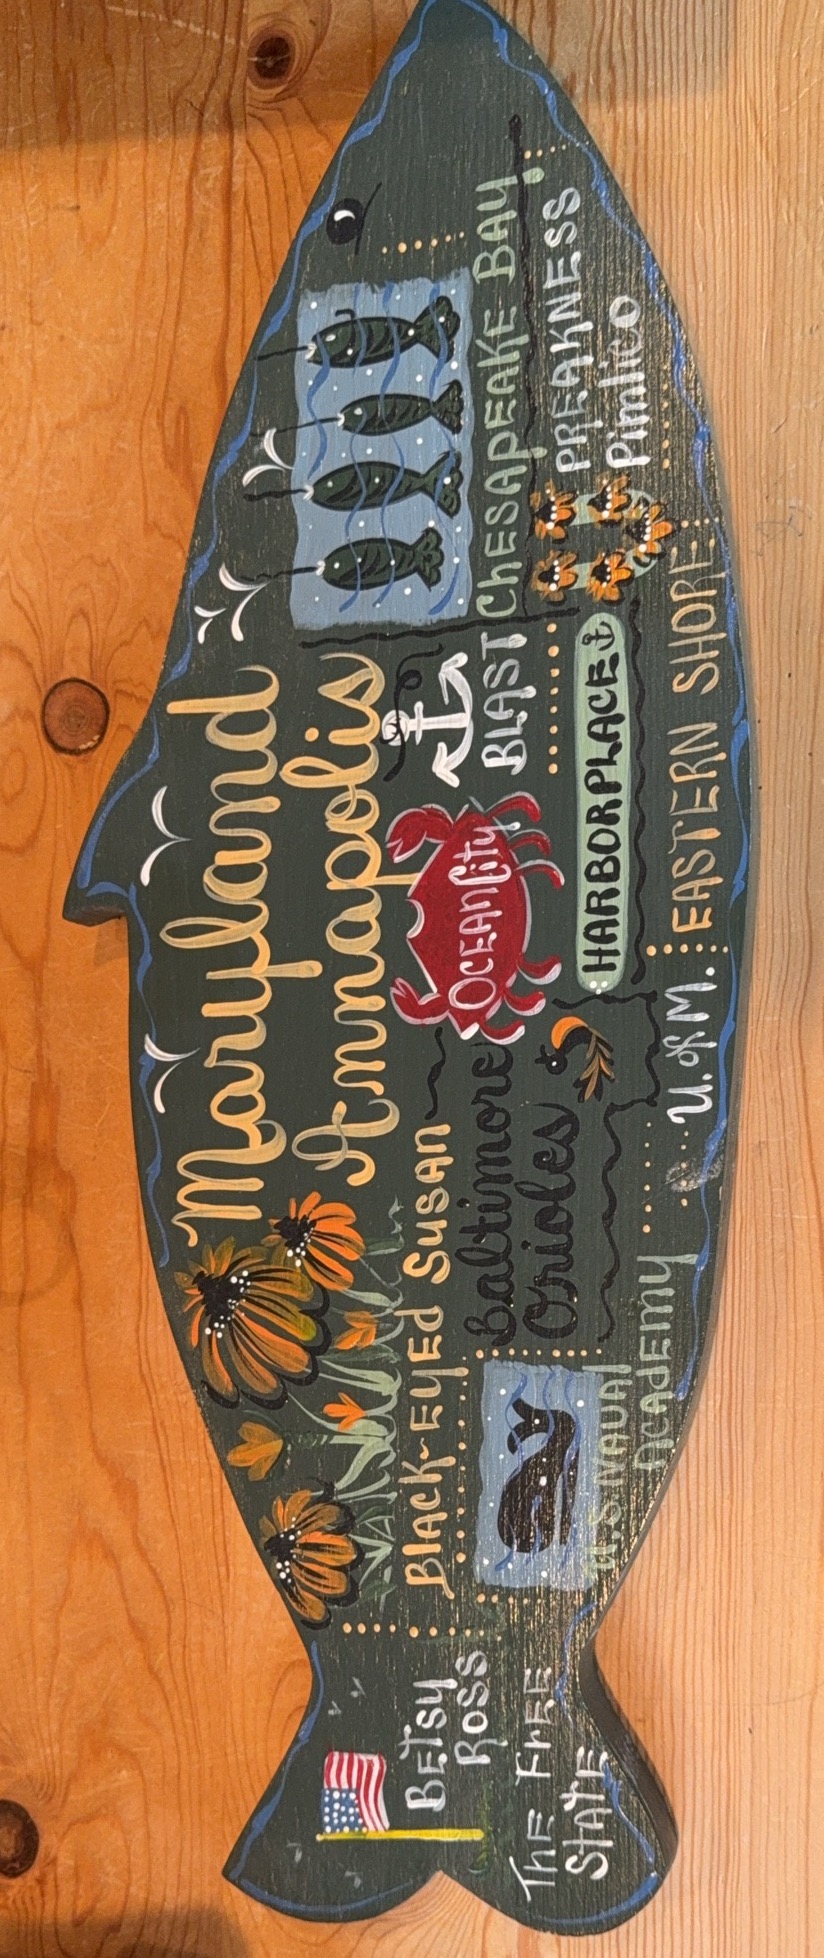 Maryland
Annapolis
BLACK-EYED SUSAN
Baltimore
Orioles
OCEAN City
BLAST
CHESAPEAKE BAY
PREAKNESS
Pimlico
HARBORPLACE
EASTERN SHORE
U. of M.
U.S. NAVAL
ACADEMY
BETSY
ROSS
THE FREE
STATE